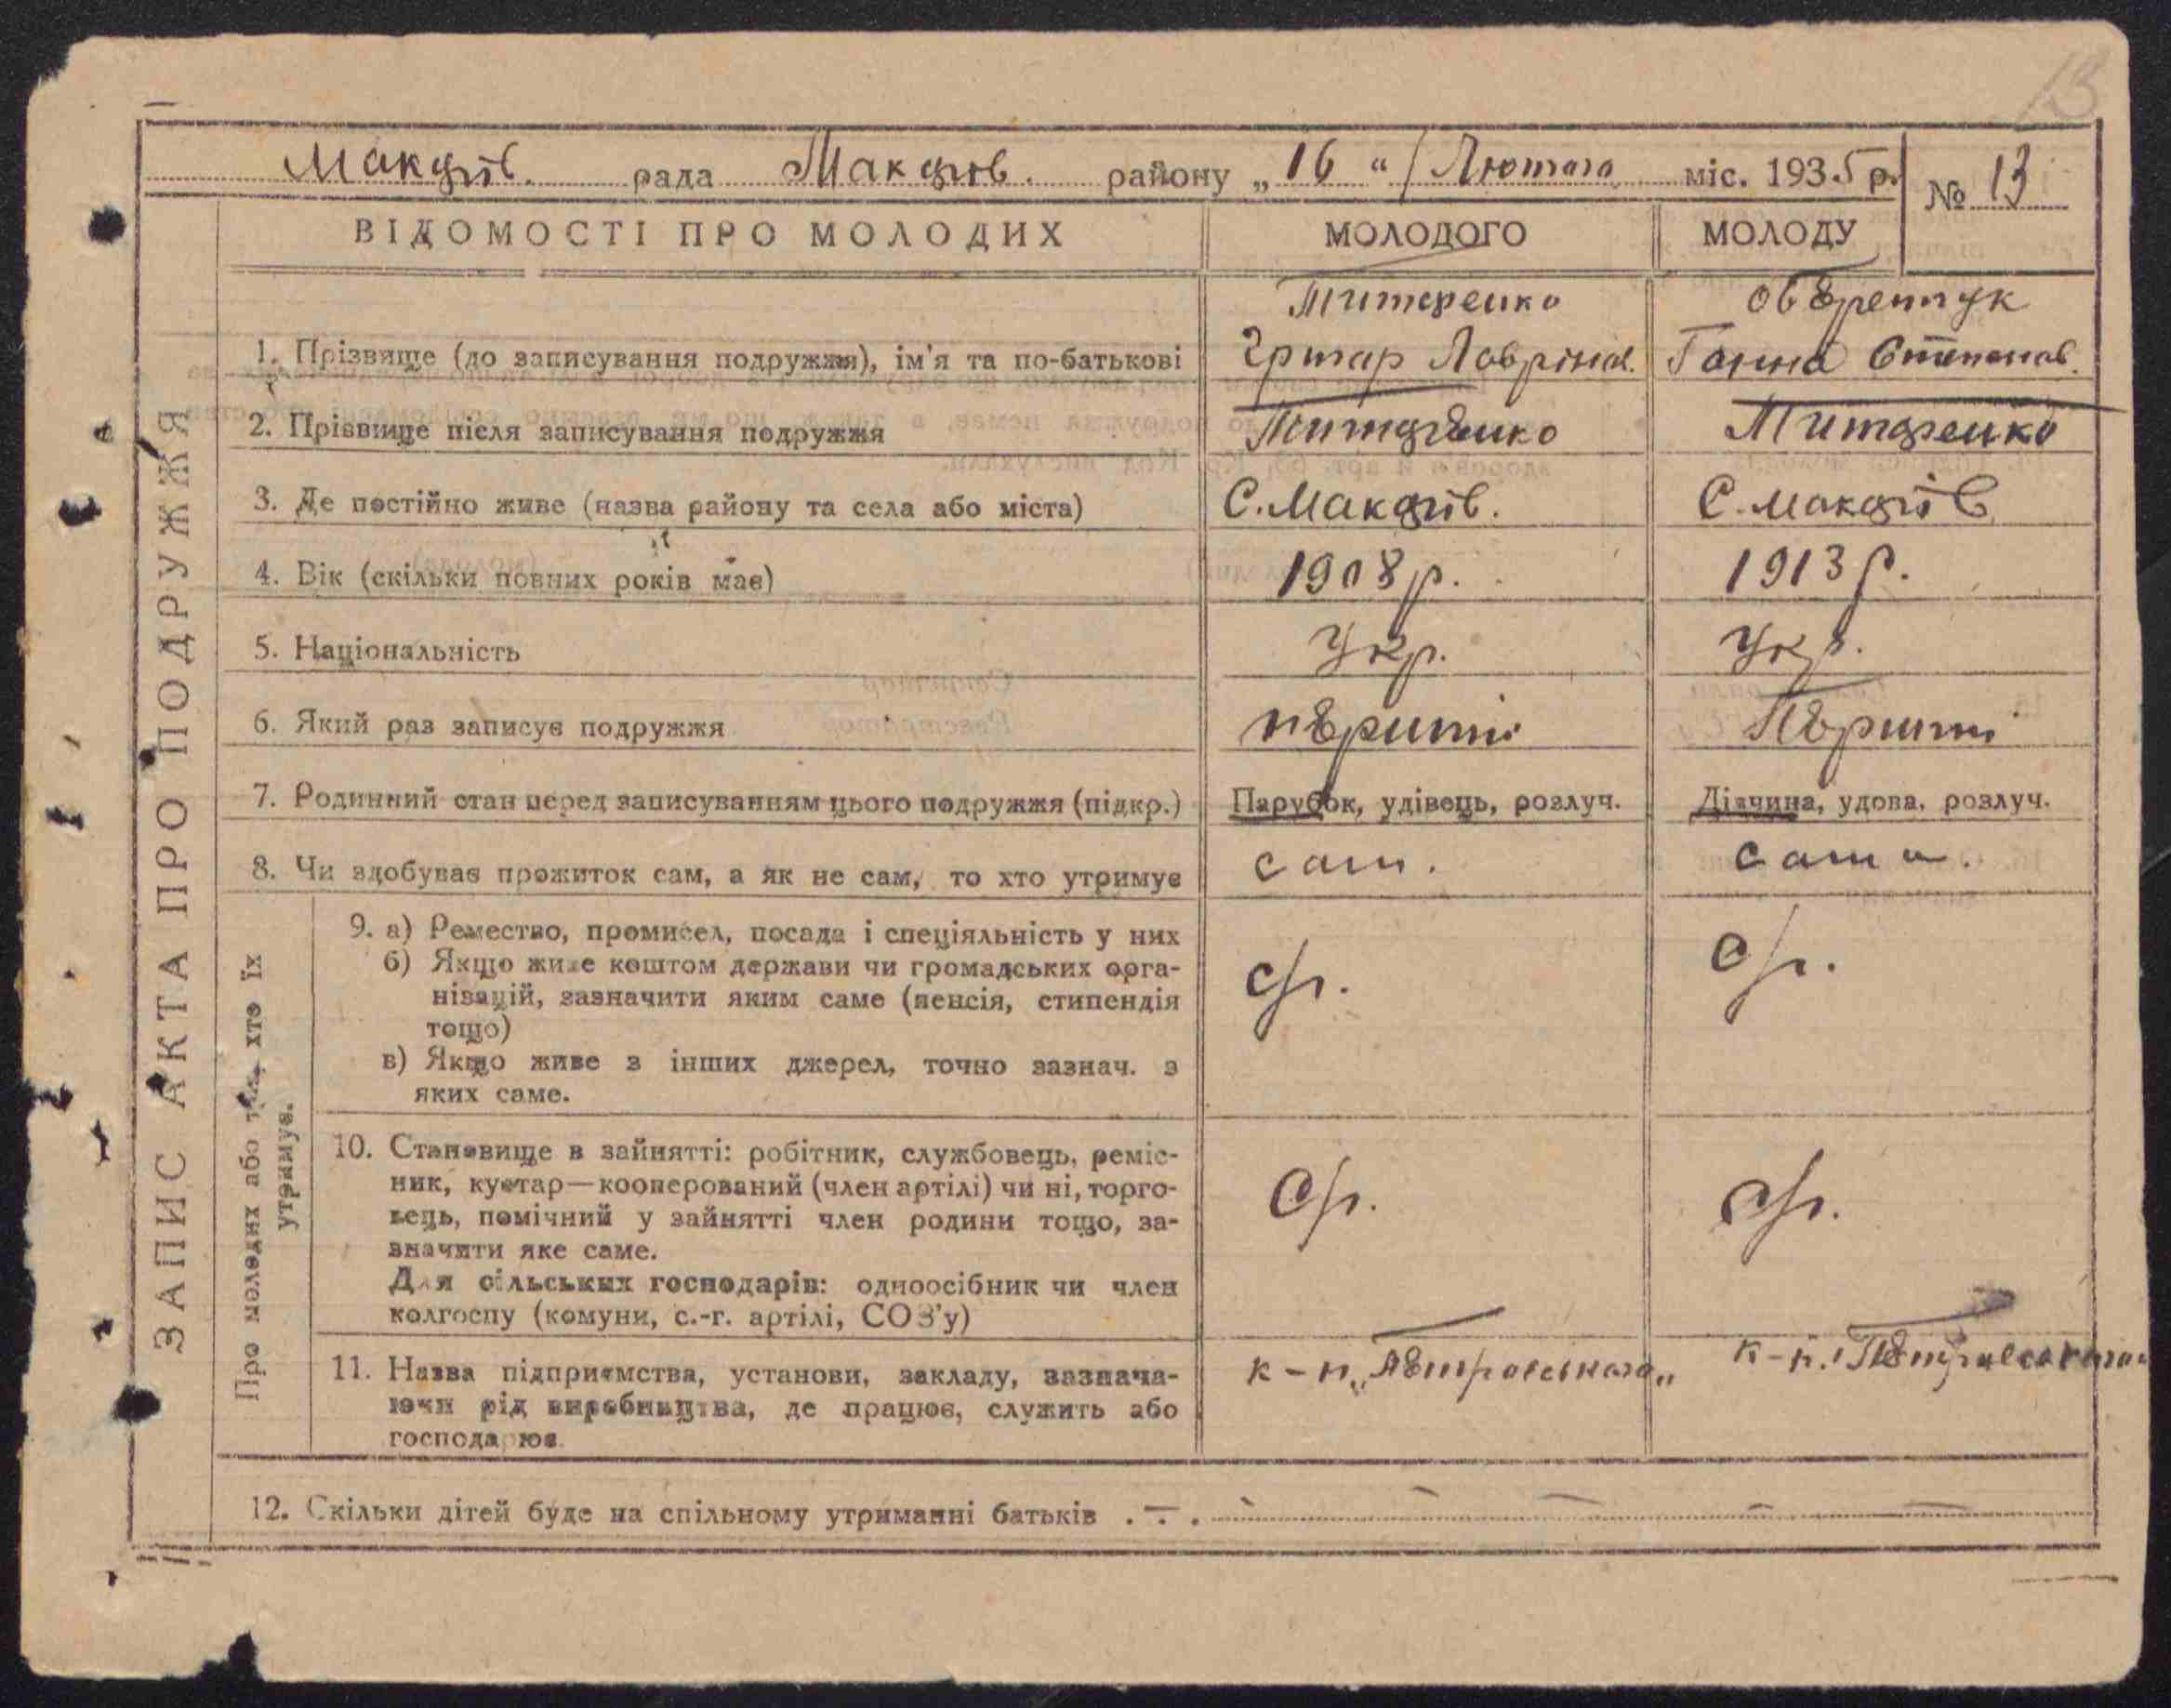 13
Макарів. рада Макарів. району „16“ Лютого міс. 1935 р. № 13
ВІДОМОСТІ ПРО МОЛОДИХ МОЛОДОГО МОЛОДУ
ЗАПИС АКТА ПРО ПОДРУЖЖЯ
Титаренко
1. Прізвище (до записування подружжя), ім'я та по-батькові Ганна Степанов.
2. Прізвище після записування подружжя Титаренко Титаренко
3. Де постійно живе (назва району та села або міста) С. Макарів. С. Макарів
4. Вік (скільки повних років має) 1908 р. 1913 р.
5. Національність Укр. Укр.
6. Який раз записує подружжя перший перший
7. Родинний стан перед записуванням цього подружжя (підкр.) Парубок, удівець, розлуч. Дівчина, удова, розлуч.
8. Чи здобуває прожиток сам, а як не сам, то хто утримує сам. сама.
Про молодих або тих, хто їх
утримує.
9. а) Ремество, промисел, посада і спеціяльність у них
б) Якщо живе коштом держави чи громадських орга-
нізацій, зазначити яким саме (пенсія, стипендія
тощо)
в) Якщо живе з інших джерел, точно зазнач. з
яких саме.
10. Становище в зайнятті: робітник, службовець, реміс-
ник, кустар—кооперований (член артілі) чи ні, торго-
вець, помічний у зайнятті член родини тощо, за-
значити яке саме.
Для сільських господарів: одноосібник чи член
колгоспу (комуни, с.-г. артілі, СОЗ'у)
11. Назва підприємства, установи, закладу, зазнача- к-п „Петровського„ к-п. „Петровського„
ючи рід виробництва, де працює, служить або
господарює.
12. Скільки дітей буде на спільному утриманні батьків . — .